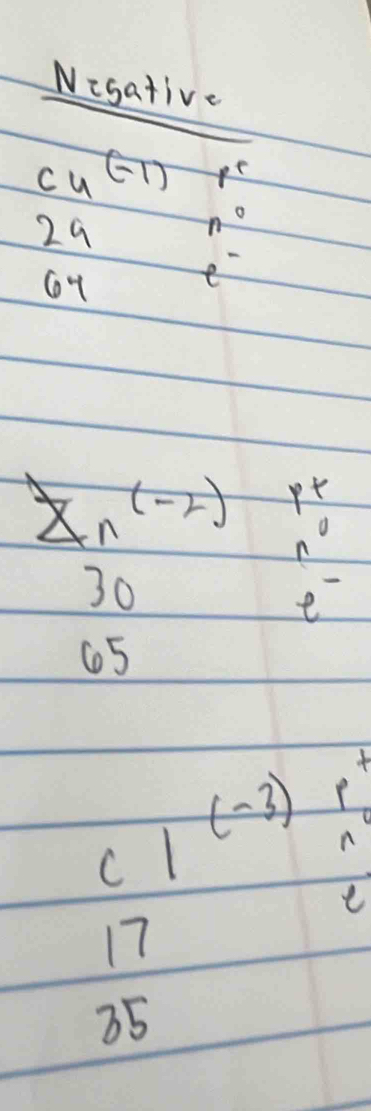 Negative
Cu (-1) p+
29 n0
64 e-
Zn (-2) p+
30 n0
65 e-
Cl (-3) p+
17 n0
35 e-